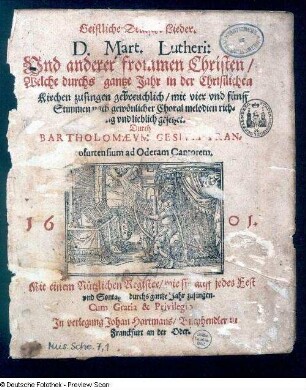 Geistliche Deutsche Lieder.
D. Mart. Lutheri:
Und anderer frommen Christen/
Welche durchs gantze Jahr in der Christlichen
Kirchen zusingen gebreuchlich/ mit vier und fünff
Stimmen nach gewönlicher Choral melodien rich-
tig und lieblich gesetzet.
Durch
BARTHOLOMÆVM GESI
ofurtensium ad Oderam Cantorem.
16 01.
Mit einem Nützlichen Register/ wie sie auff jedes Fest
und Sontag durchs gantze Jahr zusingen.
Cum Gratia & Privilegio
In verlegung Johan Hartmans/ Buchhendler
Franckfurt an der Oder.
Mus. Scho. 7,1
© Deutsche Fotothek - Preview Scan